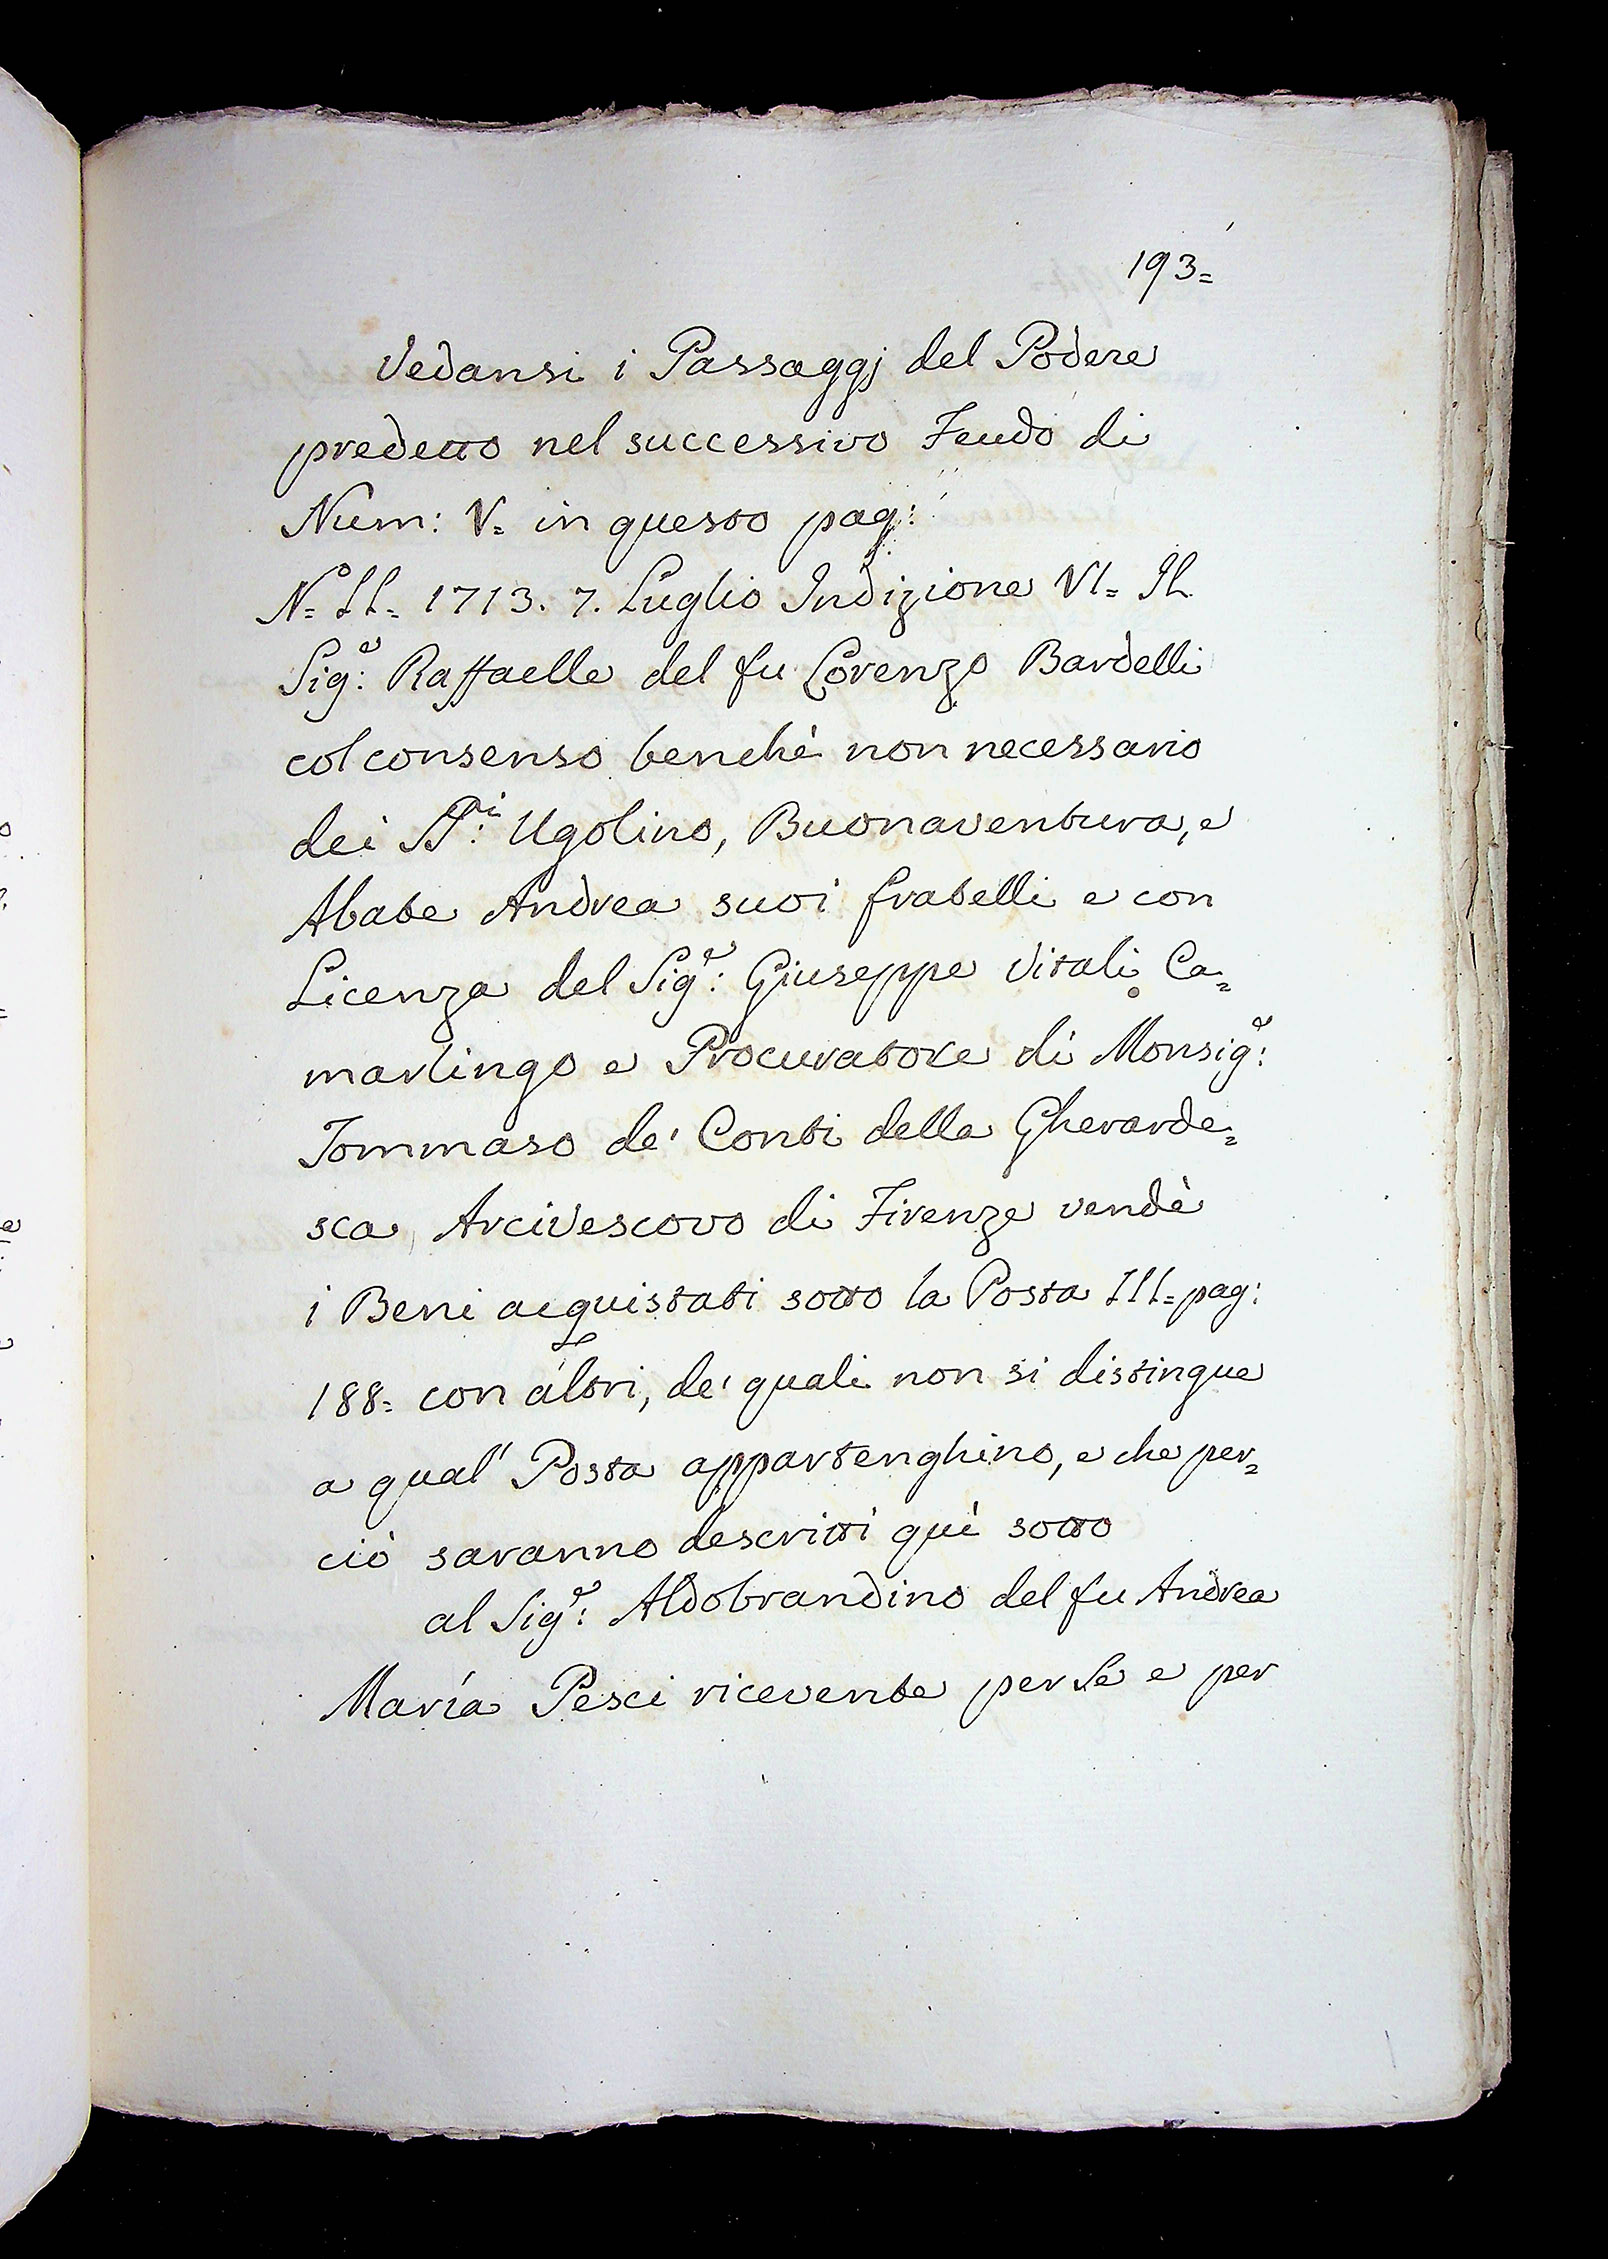 193=
Vedansi i Passaggj del Podere
predetto nel successivo Feudo di
Num: V= in questo pag:
N.º II= 1713. 7. Luglio Indizione VI= Il
Sig.e: Raffaelle del fu Lorenzo Bardelli
col consenso benchè non necessario
dei SS.ri: Ugolino, Buonaventura, e
Abate Andrea suoi fratelli e con
Licenza del Sig.e: Giuseppe Vitali Ca=
marlingo e Procuratore di Monsig.e:
Tommaso de' Conti della Gherarde=
sca Arcivescovo di Firenze vendè
i Beni acquistati sotto la Posta III= pag:
188= con altri, de' quali non si distingue
a qual' Posta appartenghino, e che per=
ciò saranno descritti quì sotto
al Sig.e: Aldobrandino del fu Andrea
Maria Pesci ricevente per Se e per